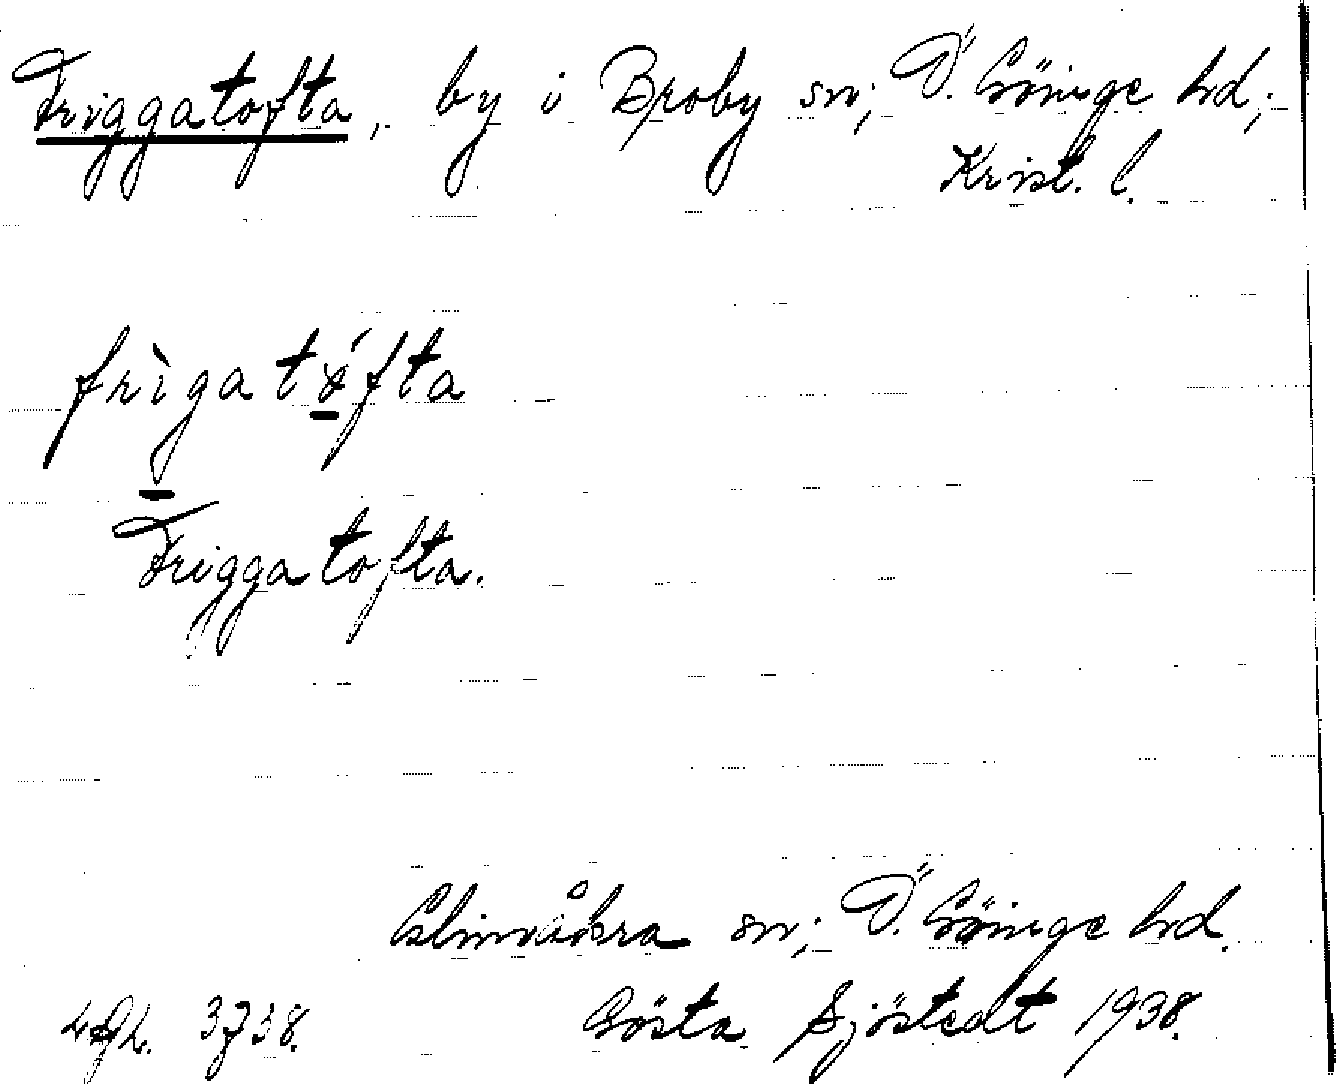 Friggatofta, by i Broby sn; Ö. Göinge hd;
Krist. l.
frìgatófta
Friggatofta.
Glimåkra sn; Ö. Göinge hd.
3738. Gösta Sjöstedt 1938.